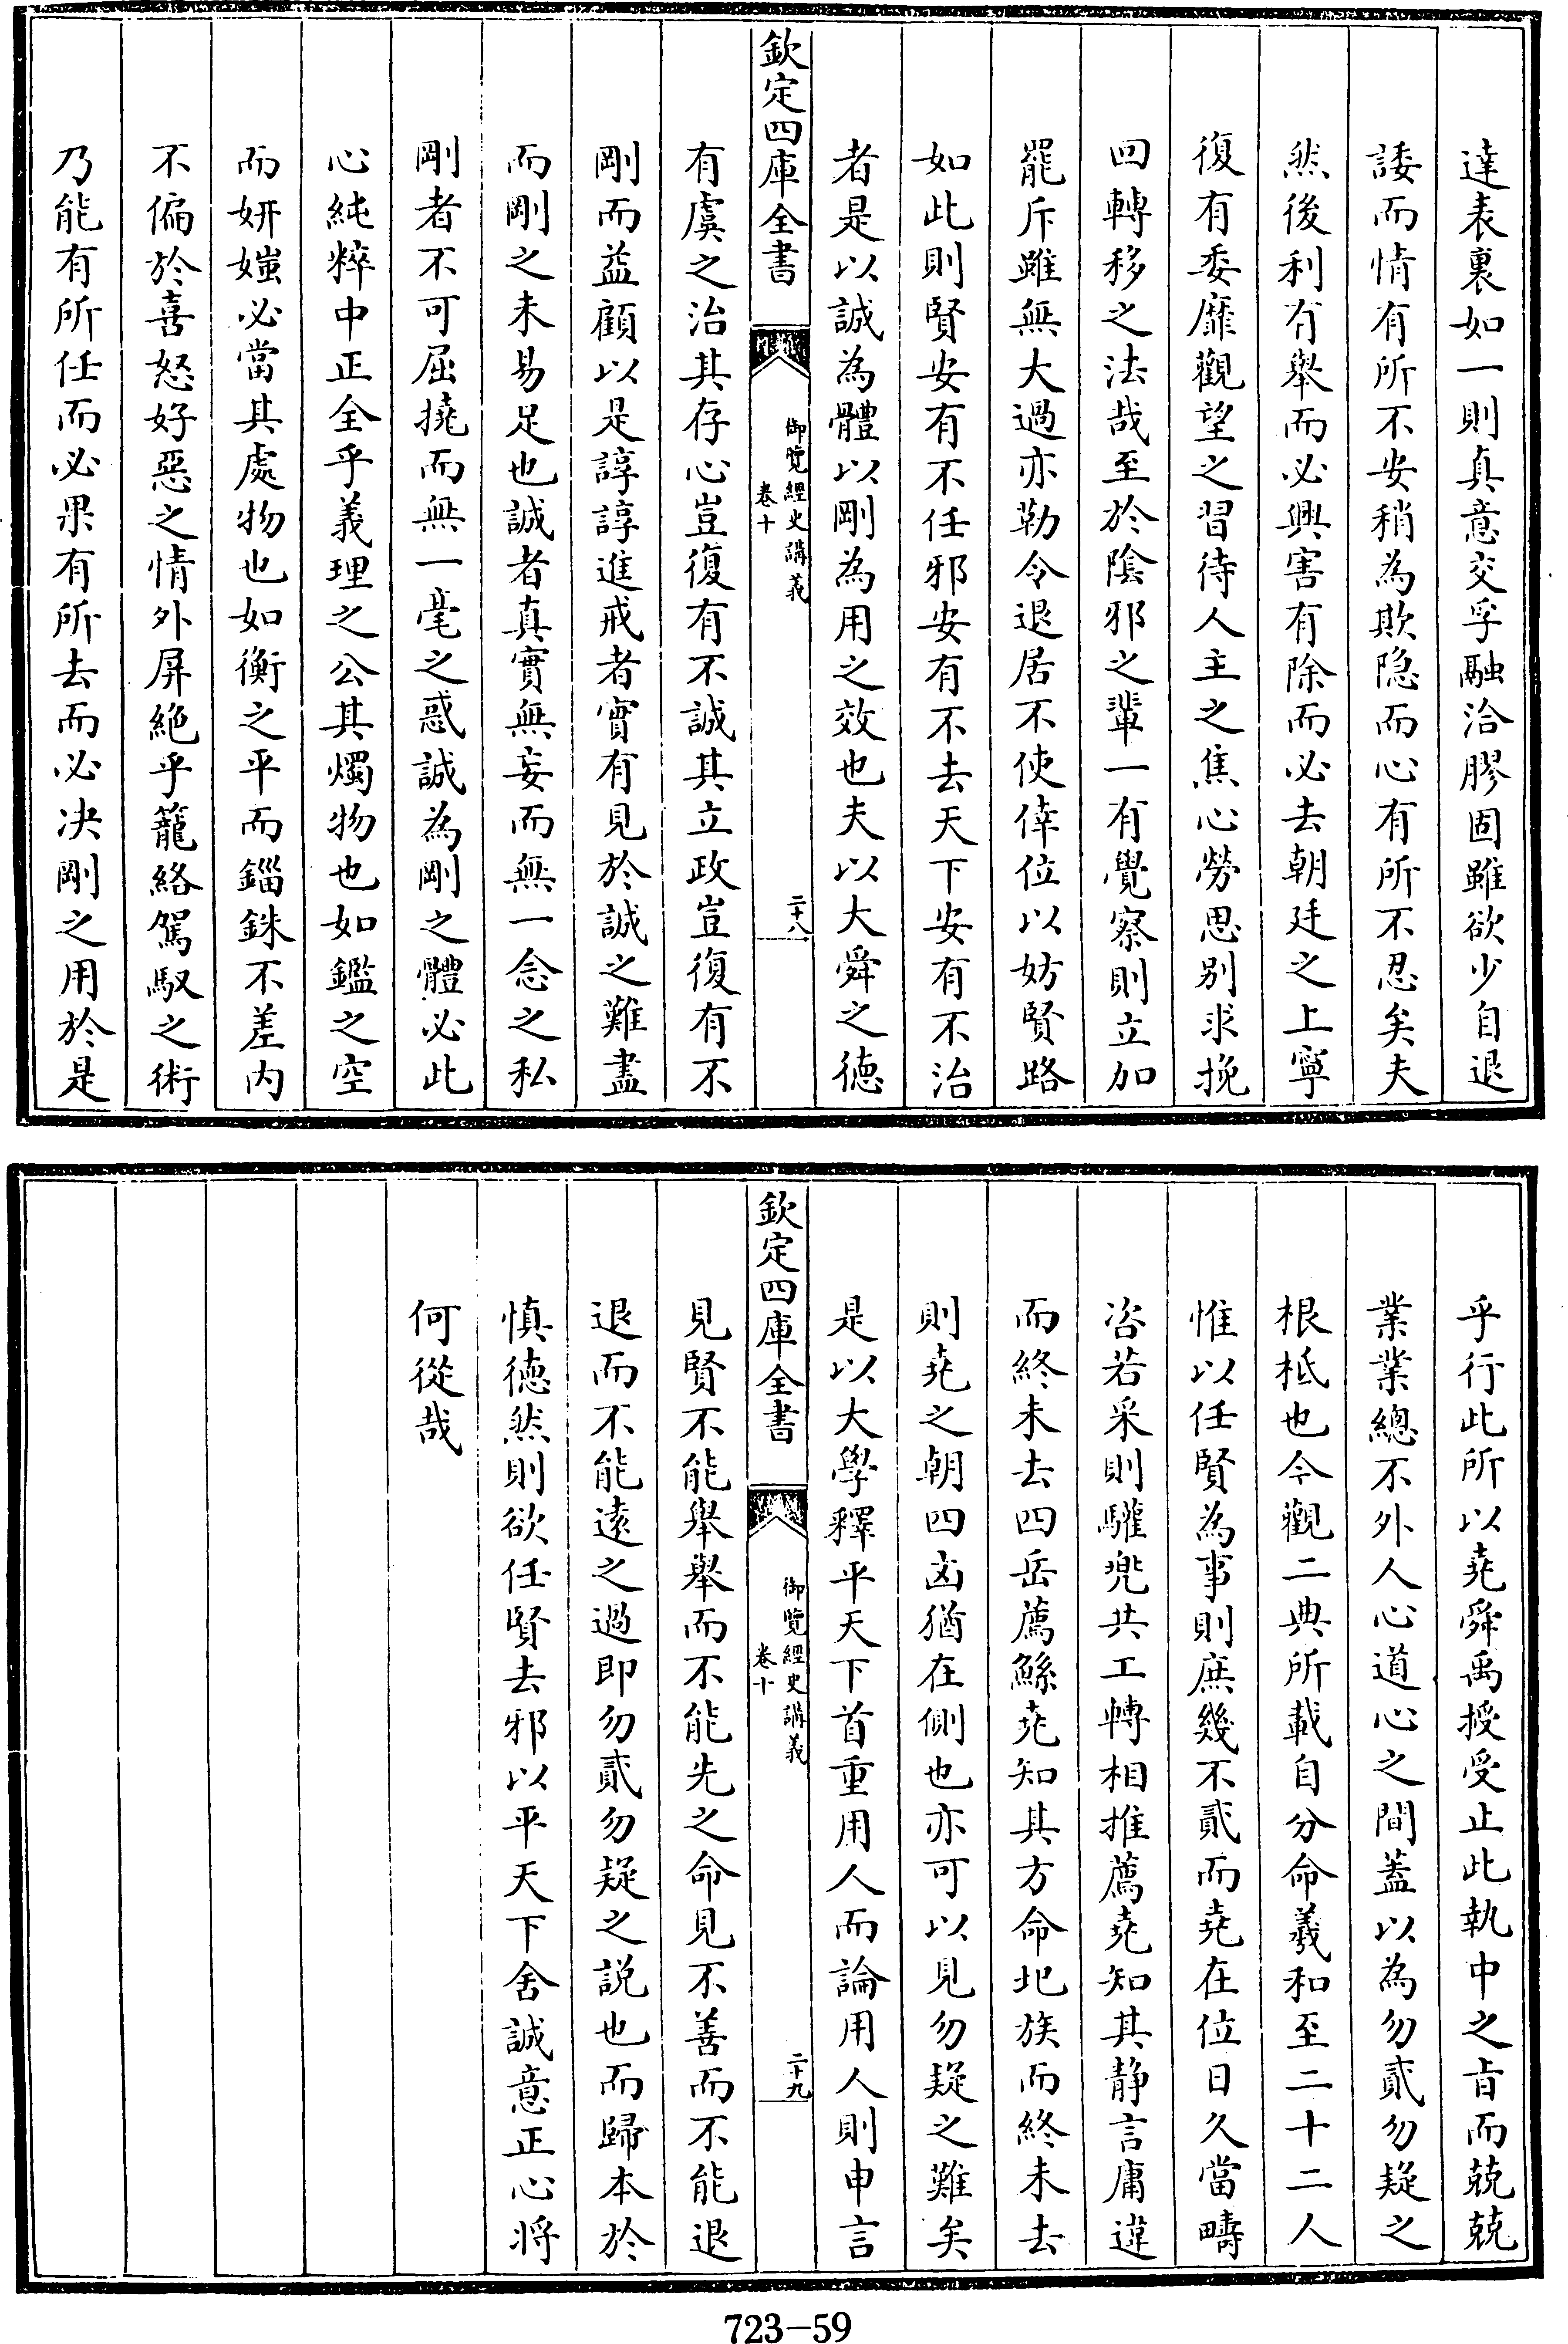 達表裏如一則真意交孚融洽膠固雖欲少自退
諉而情有所不安稍為欺隐而心有所不忍矣夫
然後利有舉而必興害有除而必去朝廷之上寧
復有委靡觀望之習待人主之焦心勞思别求挽
回轉移之法哉至於陰邪之輩一有覺察則立加
罷斥雖無大過亦勒令退居不使倖位以妨賢路
如此則賢安有不任邪安有不去天下安有不治
者是以誠為體以剛為用之效也夫以大舜之德
欽定四庫全書
御覽經史講義
卷十
二十八
有虞之治其存心豈復有不誠其立政豈復有不
剛而益顧以是諄諄進戒者實有見於誠之難盡
而剛之未易足也誠者真實無妄而無一念之私
剛者不可屈撓而無一毫之惑誠為剛之體必此
心純粹中正全乎義理之公其燭物也如鑑之空
而妍媸必當其處物也如衡之平而錙銖不差内
不偏於喜怒好惡之情外屏絶乎籠絡駕馭之術
乃能有所任而必果有所去而必决剛之用於是
乎行此所以堯舜禹授受止此執中之㫖而兢兢
業業總不外人心道心之間蓋以為勿貳勿疑之
根柢也今觀二典所載自分命羲和至二十二人
惟以任賢為事則庶幾不貳而堯在位日久當疇
咨若采則驩兜共工轉相推薦堯知其静言庸違
而終未去四岳薦鯀堯知其方命圯族而終未去
則堯之朝四凶猶在側也亦可以見勿疑之難矣
是以大學釋平天下首重用人而論用人則申言
欽定四庫全書
御覽經史講義
卷十
二十九
見賢不能舉舉而不能先之命見不善而不能退
退而不能逺之過即勿貳勿疑之説也而歸本於
慎德然則欲任賢去邪以平天下舍誠意正心将
何從哉
723-59